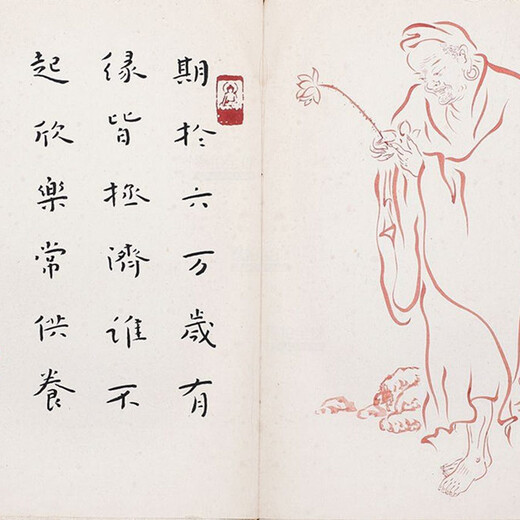 期於六万歲有
缘皆拯濟誰不
起欣樂常供養